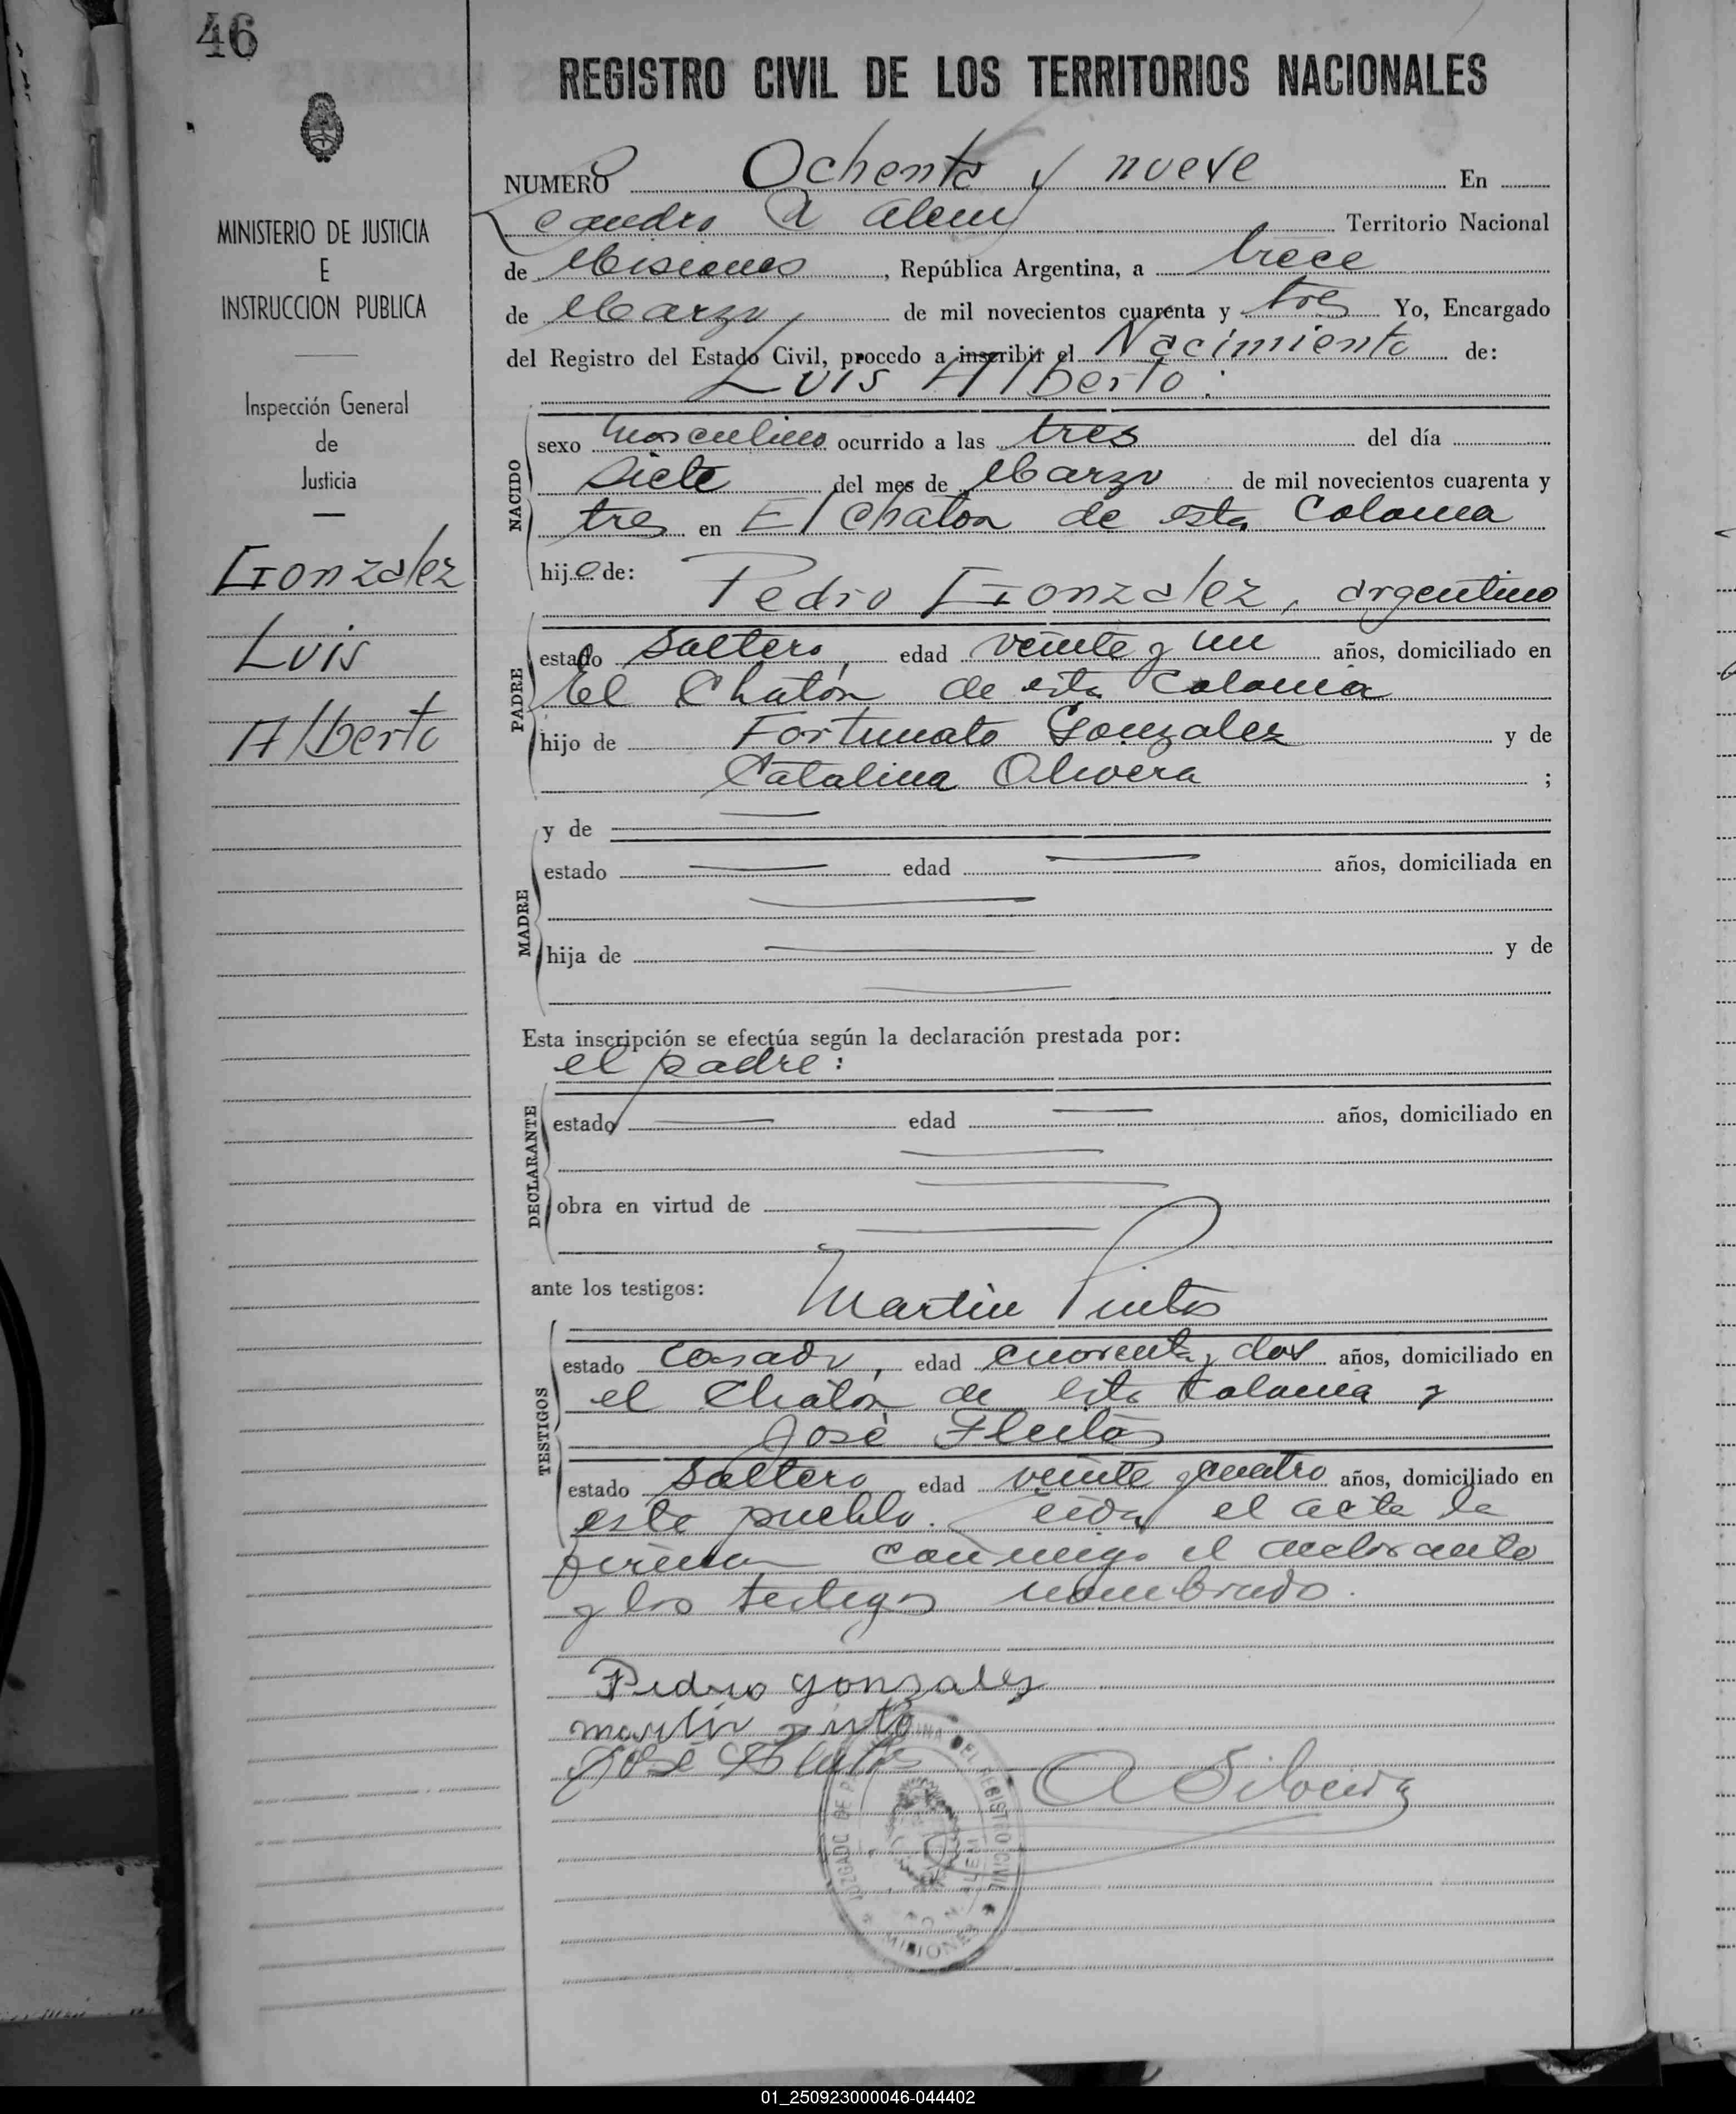 46
REGISTRO CIVIL DE LOS TERRITORIOS NACIONALES
MINISTERIO DE JUSTICIA
E
INSTRUCCION PUBLICA
Inspección General
de
Justicia
Gonzalez
Luis
Alberto
NUMERO Ochenta y nueve En
Leandro N Alem Territorio Nacional
de Misiones, República Argentina, a trece
de Marzo de mil novecientos cuarenta y tres Yo, Encargado
del Registro del Estado Civil, procedo a inscribir el Nacimiento de:
Luis Alberto:
NACIDO
sexo masculino ocurrido a las tres del día
siete del mes de Marzo de mil novecientos cuarenta y
tres en El Chatón de esta Colonia
hijo de:
Pedro Gonzalez, argentino
PADRE
estado soltero, edad veinte y un años, domiciliado en
el Chatón de esta Colonia
hijo de Fortunato Gonzalez y de
Catalina Olivera ;
MADRE
y de
estado edad años, domiciliada en
hija de y de
Esta inscripción se efectúa según la declaración prestada por:
el padre:
DECLARANTE
estado edad años, domiciliado en
obra en virtud de
ante los testigos: Martin Pinto
TESTIGOS
estado casado, edad cuarenta y dos años, domiciliado en
el Chatón de esta Colonia y
José Fleitas
estado soltero edad veinte y cuatro años, domiciliado en
este pueblo. Leida el acta la
firman conmigo el declarante
y los testigos nombrado.
Pedro gonzalez
martin pinto
José Fleitas
A Silveira
JUZGADO DE PAZ OFICINA DEL REGISTRO CIVIL
MISIONES
01_250923000046-044402